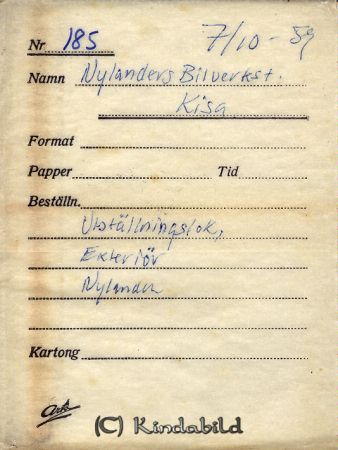 Nr 185 7/10 - 59
Namn Nylanders Bilverkst.
Kisa
Format
Papper Tid
Beställn.
Utställningslok,
Exteriör
Nylander
Kartong
Ark
(C) Kindabild